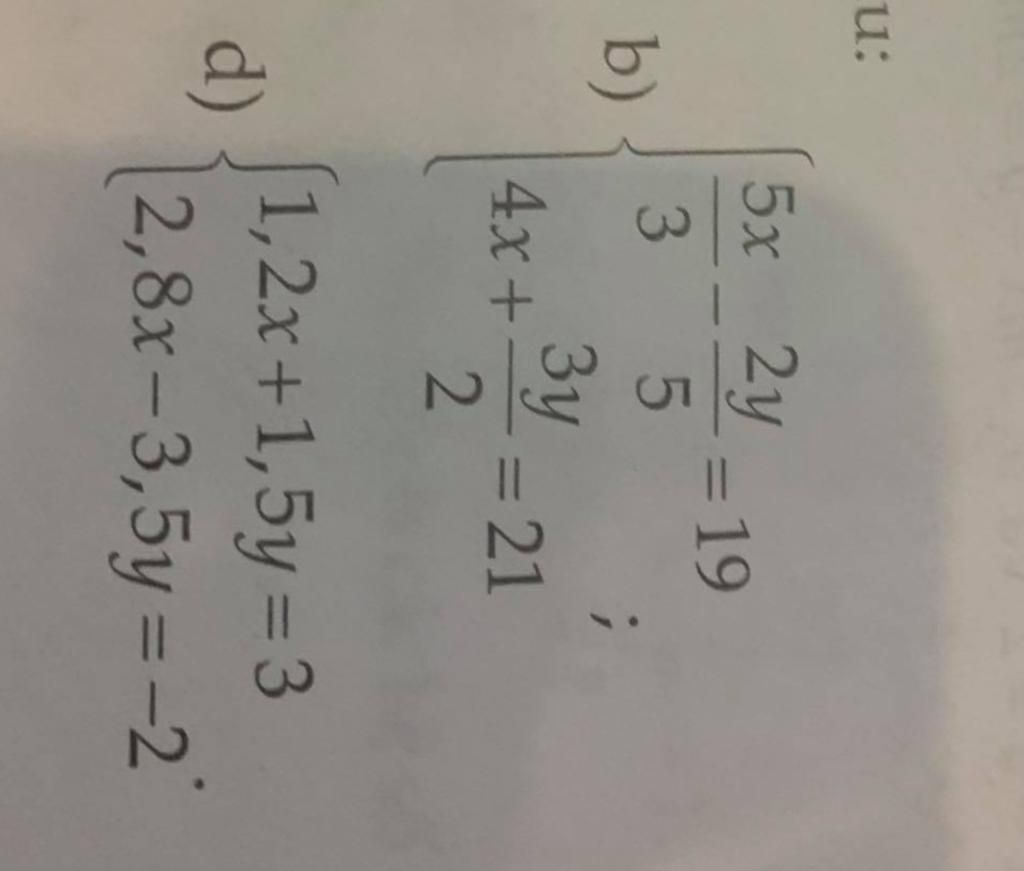 u:
b) { 5x/3 − 2y/5 = 19
4x + 3y/2 = 21 ;
d) { 1,2x + 1,5y = 3
2,8x − 3,5y = −2.